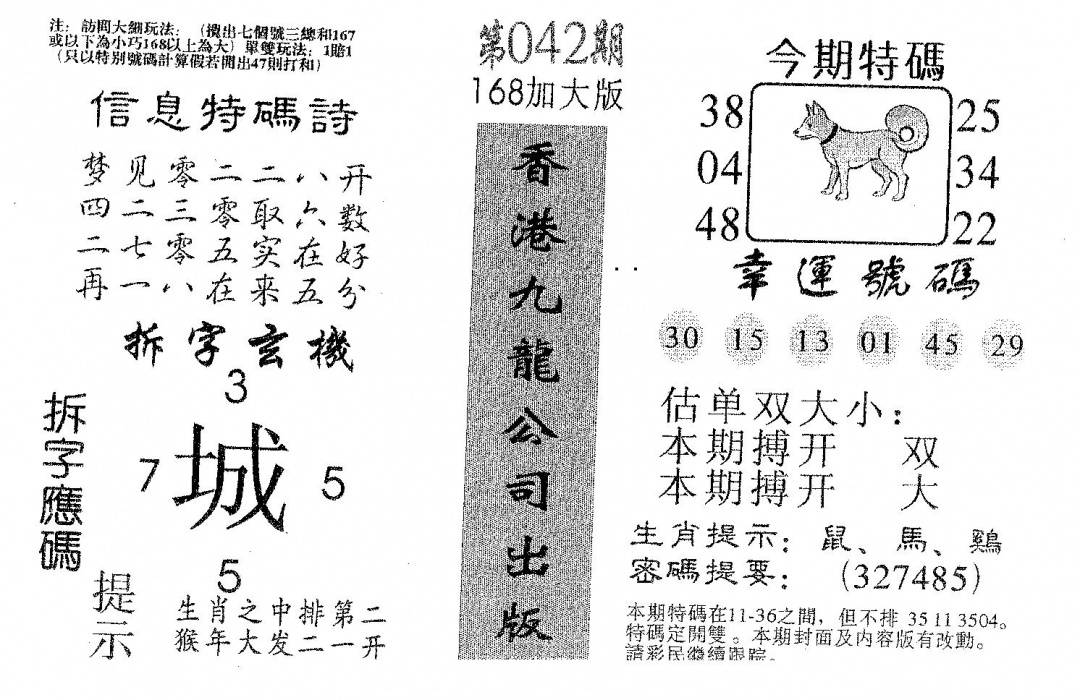 注：訪問大細玩法：（攪出七個號三總和167
或以下為小巧168以上為大）單雙玩法：1賠1
（只以特别號碼計算假若開出47則打和）
信息特碼詩
梦见零二二八开
四二三零取六数
二七零五实在好
再一八在来五分
拆字玄機
3
7 城 5
5
拆字應碼
提示
生肖之中排第二
猴年大发二一开
第042期
168加大版
香港九龍公司出版
今期特碼
38 25
04 34
48 22
幸運號碼
30 15 13 01 45 29
估单双大小：
本期搏开 双
本期搏开 大
生肖提示：鼠、馬、鷄
密碼提要：（327485）
本期特碼在11-36之間，但不排 35 11 3504。
特碼定開雙。本期封面及内容版有改動。
請彩民繼續跟踪。